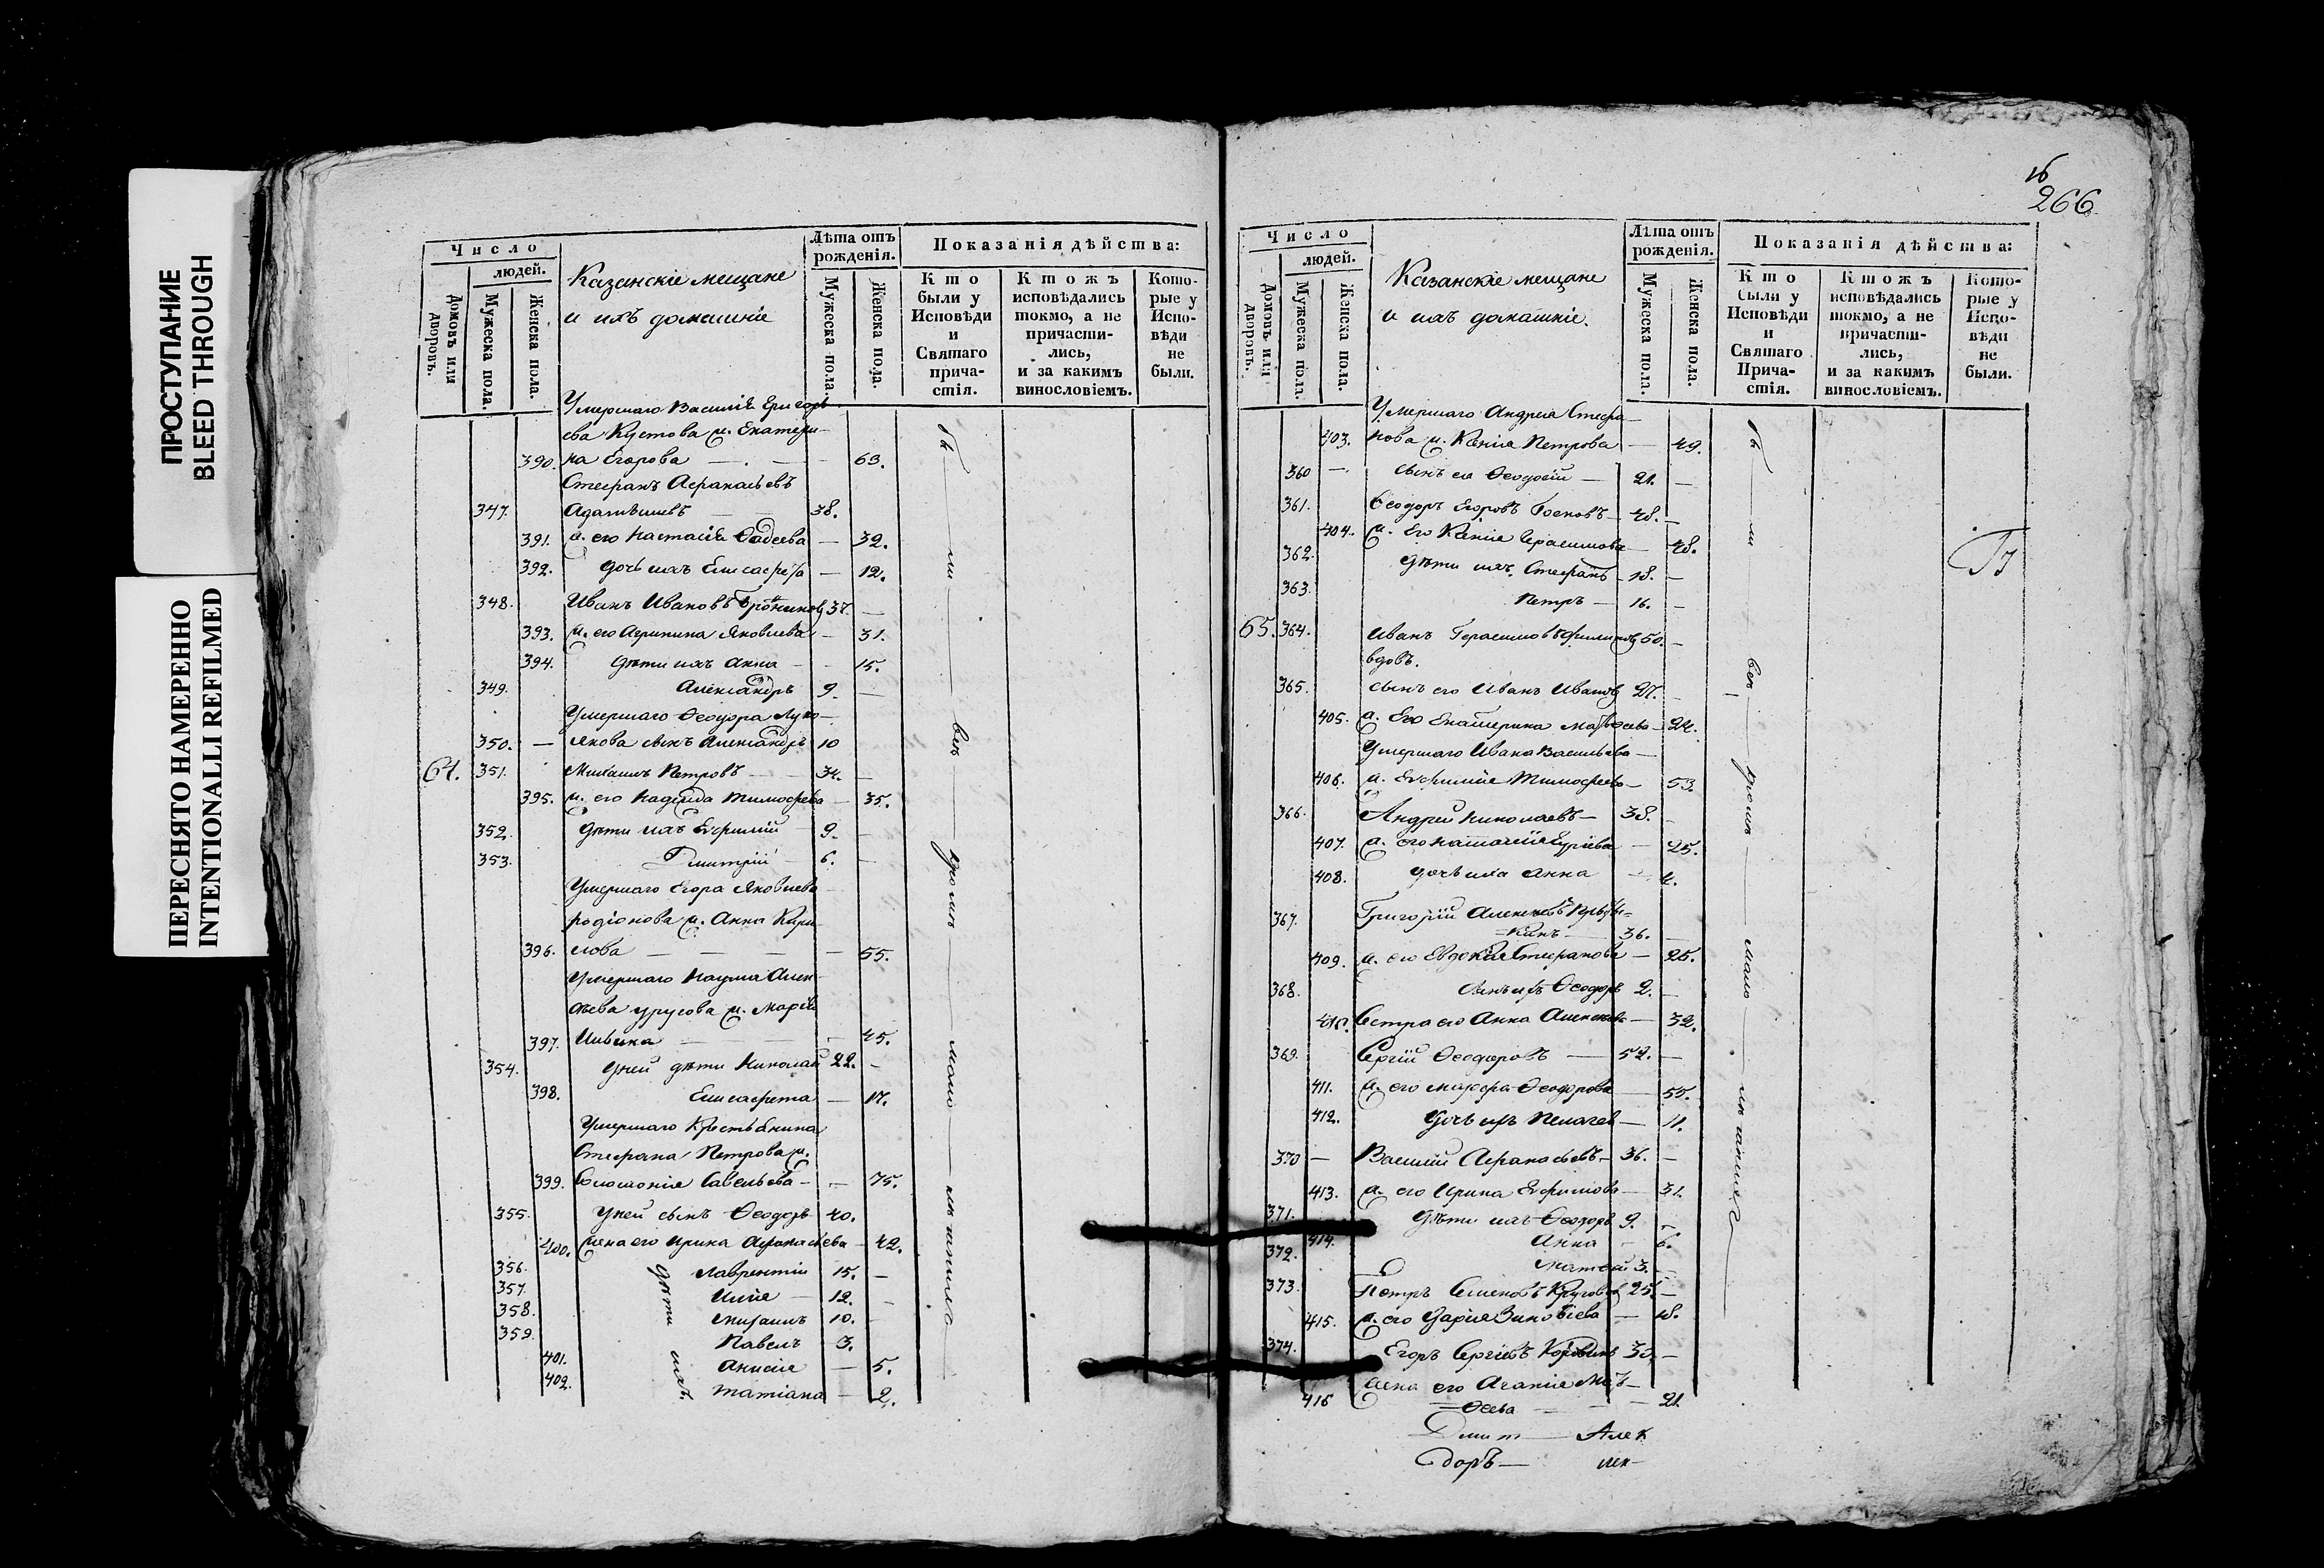 ПРОСТУПАНИЕ
BLEED THROUGH
ПЕРЕСНЯТО НАМЕРЕННО
INTENTIONALLI REFILMED
Число
людей.
Домовъ или дворовъ.
Мужеска пола.
Женска пола.
Казанскіе мещане
и ихъ домашніе
Лѣта отъ рожденія.
Мужеска пола.
Женска пола.
Показанія дѣйства:
Кто были у Исповѣди и Святаго причастія.
Ктожъ исповѣдались токмо, а не причастились, и за какимъ винословіемъ.
Которые у Исповѣди не были.
Умершаго Василія Григорь
ева Кустова ж. Екатери
390. на Егорова — 63.
Стефанъ Афанасьевъ
347. 38.
391. ж. его Настасія Фадеева — 32.
392. дочь ихъ Елисавета — 12.
348. Иванъ Ивановъ 37. —
393. ж. его Агрипина Яковлева — 31.
394. дѣти ихъ Анна — 15.
349. Александръ 9. —
Умершаго Ѳеодора Луко
350. — янова сынъ Александръ 10
64. 351. Михаилъ Петровъ — 34. —
395. ж. его Надежда Тимофеева — 35.
352. дѣти ихъ Евфимій 9. —
353. Дмитрій — 6. —
Умершаго Егора Яковлева
Родіонова ж. Анна Кири
396. лова — — — 55.
Умершаго Наума Алек
сѣева Урусова ж. Марія
397. Ильина — — 45.
354. у ней дѣти Николай 22. —
398. Елисавета — 17.
Умершаго Крестьянина
Стефана Петрова ж.
399. Соломонія Савельева — — 75.
355. у ней сынъ Ѳеодоръ 40.
400. жена его Ирина Афанасьева — 42.
356. Лаврентій 15. —
357. Илія — 12. —
358. Михаилъ 10. —
359. Павелъ 3.
401. Анисія — 5.
402. Татіана — 2.
дѣти ихъ.
Бы — ли — всѣ — кромѣ — мало — лѣтнихъ
16
266
Число
людей.
Домовъ или дворовъ.
Мужеска пола.
Женска пола.
Казанскіе мещане
и ихъ домашніе.
Лѣта отъ рожденія.
Мужеска пола.
Женска пола.
Показанія дѣйства:
Кто были у Исповѣди и Святаго Причастія.
Ктожъ исповѣдались токмо, а не причастились, и за какимъ винословіемъ.
Которые у Исповѣди не были.
Умершаго Андрея Стефа
403. нова ж. Ксенія Петрова — 49.
360 — сынъ ея Ѳеодосій — 21. —
361. Ѳеодоръ Егоровъ 48. —
404. ж. Его Ксенія Герасимова — 48.
362. дѣти ихъ. Стефанъ — 18. —
363. Петръ — 16. —
65. 364. Иванъ Герасимовъ Филиповъ 50. —
вдовъ.
365. сынъ его Иванъ Ивановъ 27. —
405. ж. Его Екатерина Матѳеева — 24.
Умершаго Ивана Васильева —
406. ж. Евфимія Тимофеева — 53.
366. Андрей Николаевъ — 38. —
407. ж. его — 25.
408. дочь ихъ Анна — 4.
367. Григорій Алексеевъ
36. —
409. ж. его Евдокія Стефанова — 25.
368. сынъ ихъ Ѳеодоръ 2. —
410. Сестра его Анна Алексеева — 32.
369. Сергій Ѳеодоровъ — 52. —
411. ж. его Марфа Ѳеодорова — 55.
412. дочь ихъ Пелагея — 11.
370 — Василій Афанасьевъ — 36. —
413. ж. его Ирина Ефимова — 31.
371. дѣти ихъ Ѳеодоръ 9. —
414. Анна — 6.
372. Матѳей 3. —
373. Петръ Семеновъ 25. —
415. ж. его Дарія Зиновіева — 18.
374. Егоръ Сергіевъ 30. —
жена его Агапія Мат
416 ѳеева — — 21.
Бы — ли — всѣ — кромѣ — мало — лѣтнихъ
Дмит — Алек
доръ —